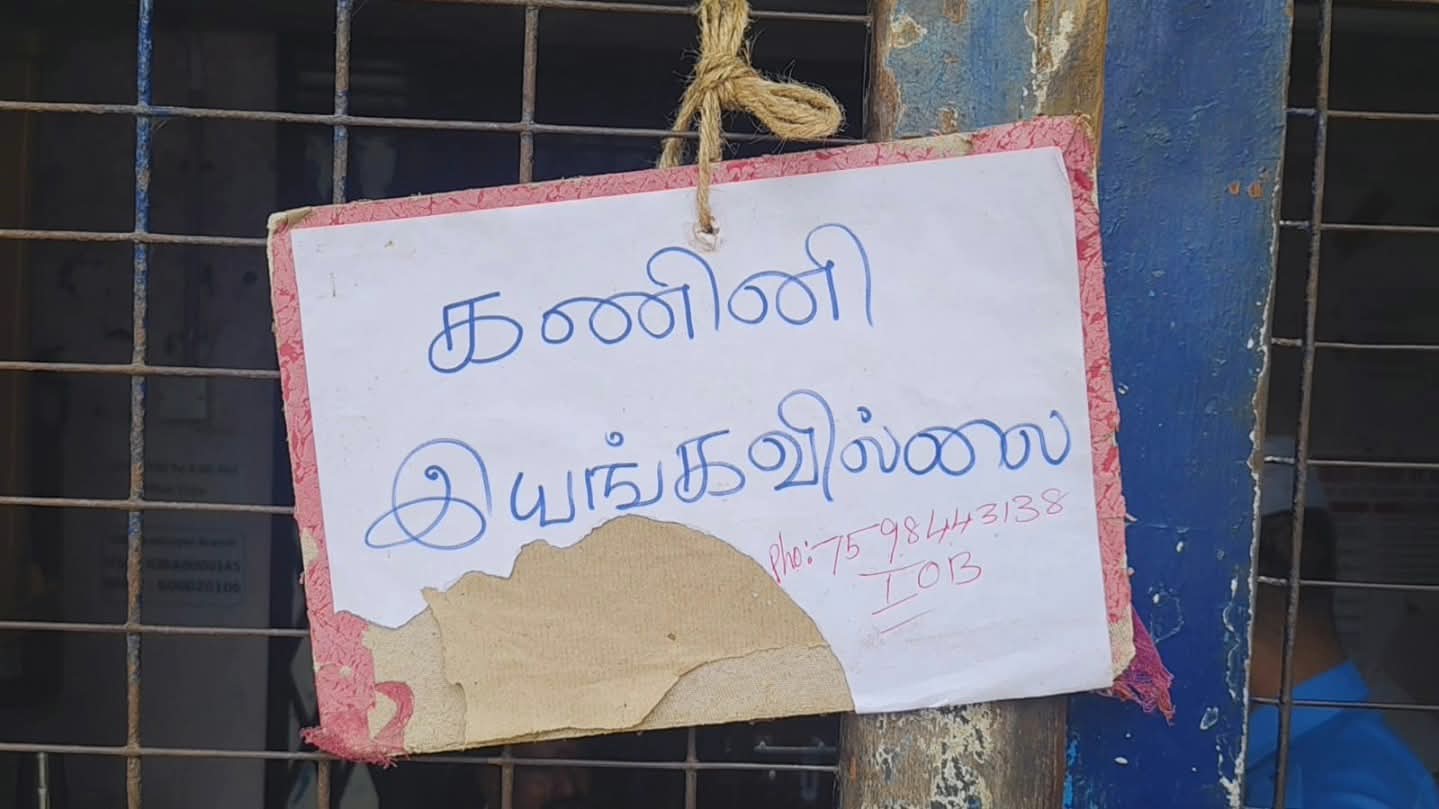 கணினி
இயங்கவில்லை
Pho: 7598443138
IOB